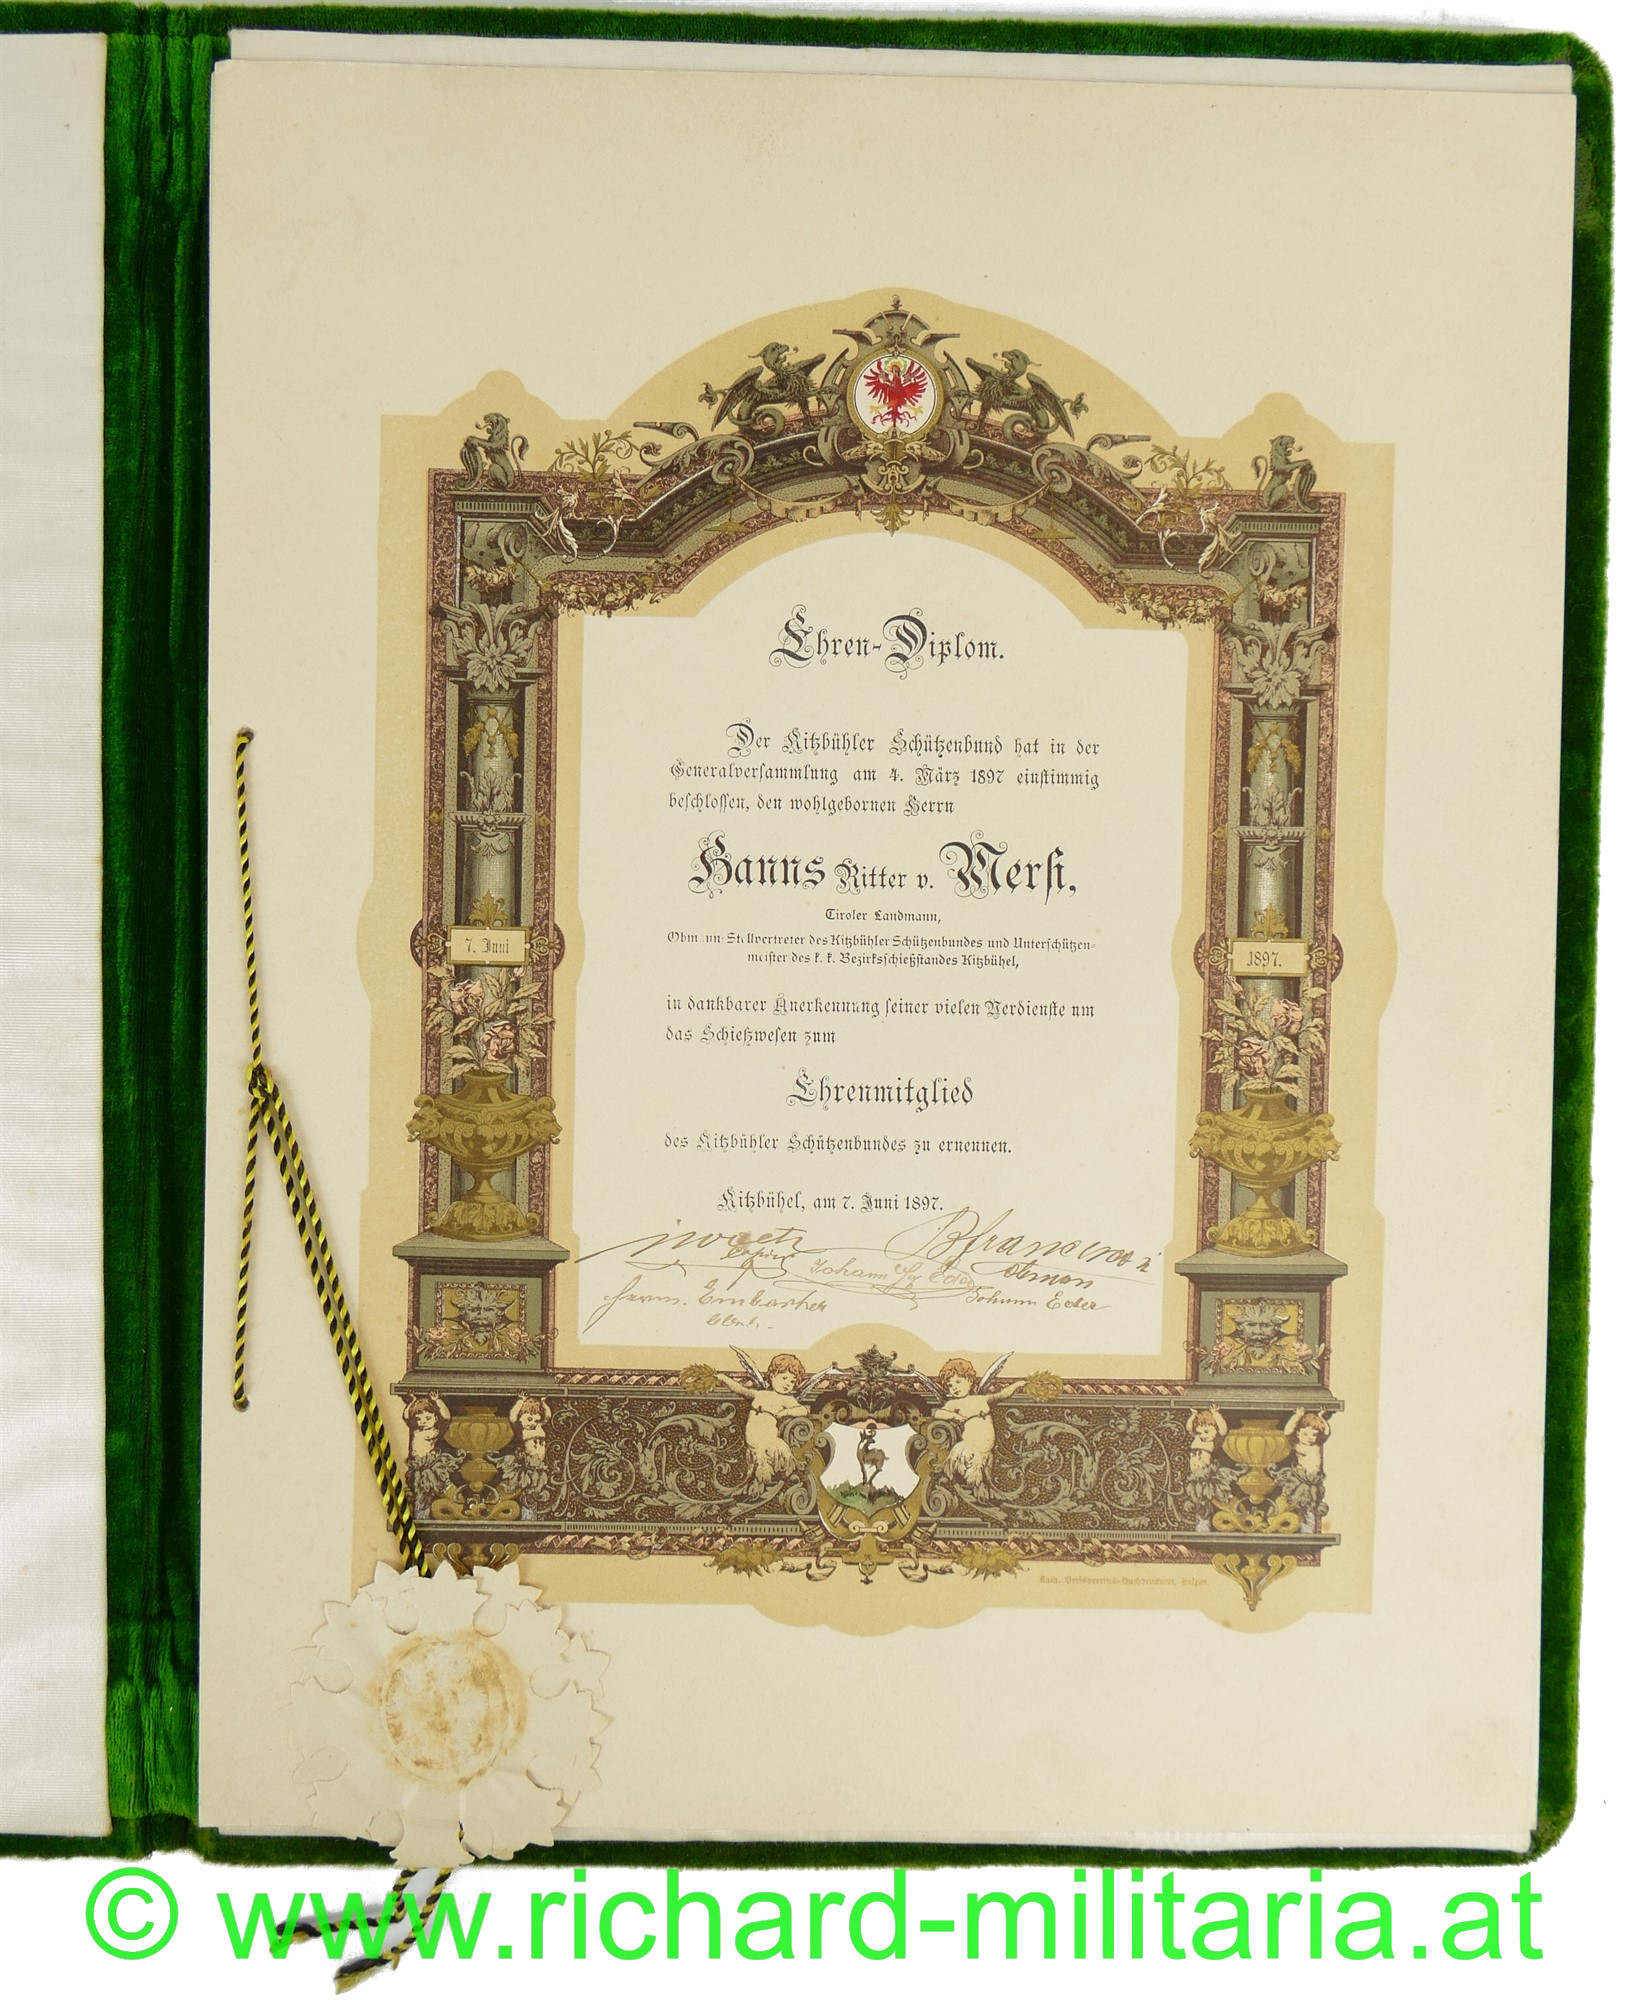 Ehren-Diplom.
Der Kitzbühler Schützenbund hat in der
Generalversammlung am 4. März 1897 einstimmig
beschlossen, den wohlgebornen Herrn
Hanns Ritter v. Mersi,
Tiroler Landmann,
Obmann-Stellvertreter des Kitzbühler Schützenbundes und Unterschützen-
meister des k. k. Bezirksschießstandes Kitzbühel,
7. Juni
1897.
in dankbarer Anerkennung seiner vielen Verdienste um
das Schießwesen zum
Ehrenmitglied
des Kitzbühler Schützenbundes zu ernennen.
Kitzbühel, am 7. Juni 1897.
Johann Eder
Obman
Herm. Embacher
Johann Eder
Kath. Preßvereins-Buchdruckerei, Brixen.
© www.richard-militaria.at